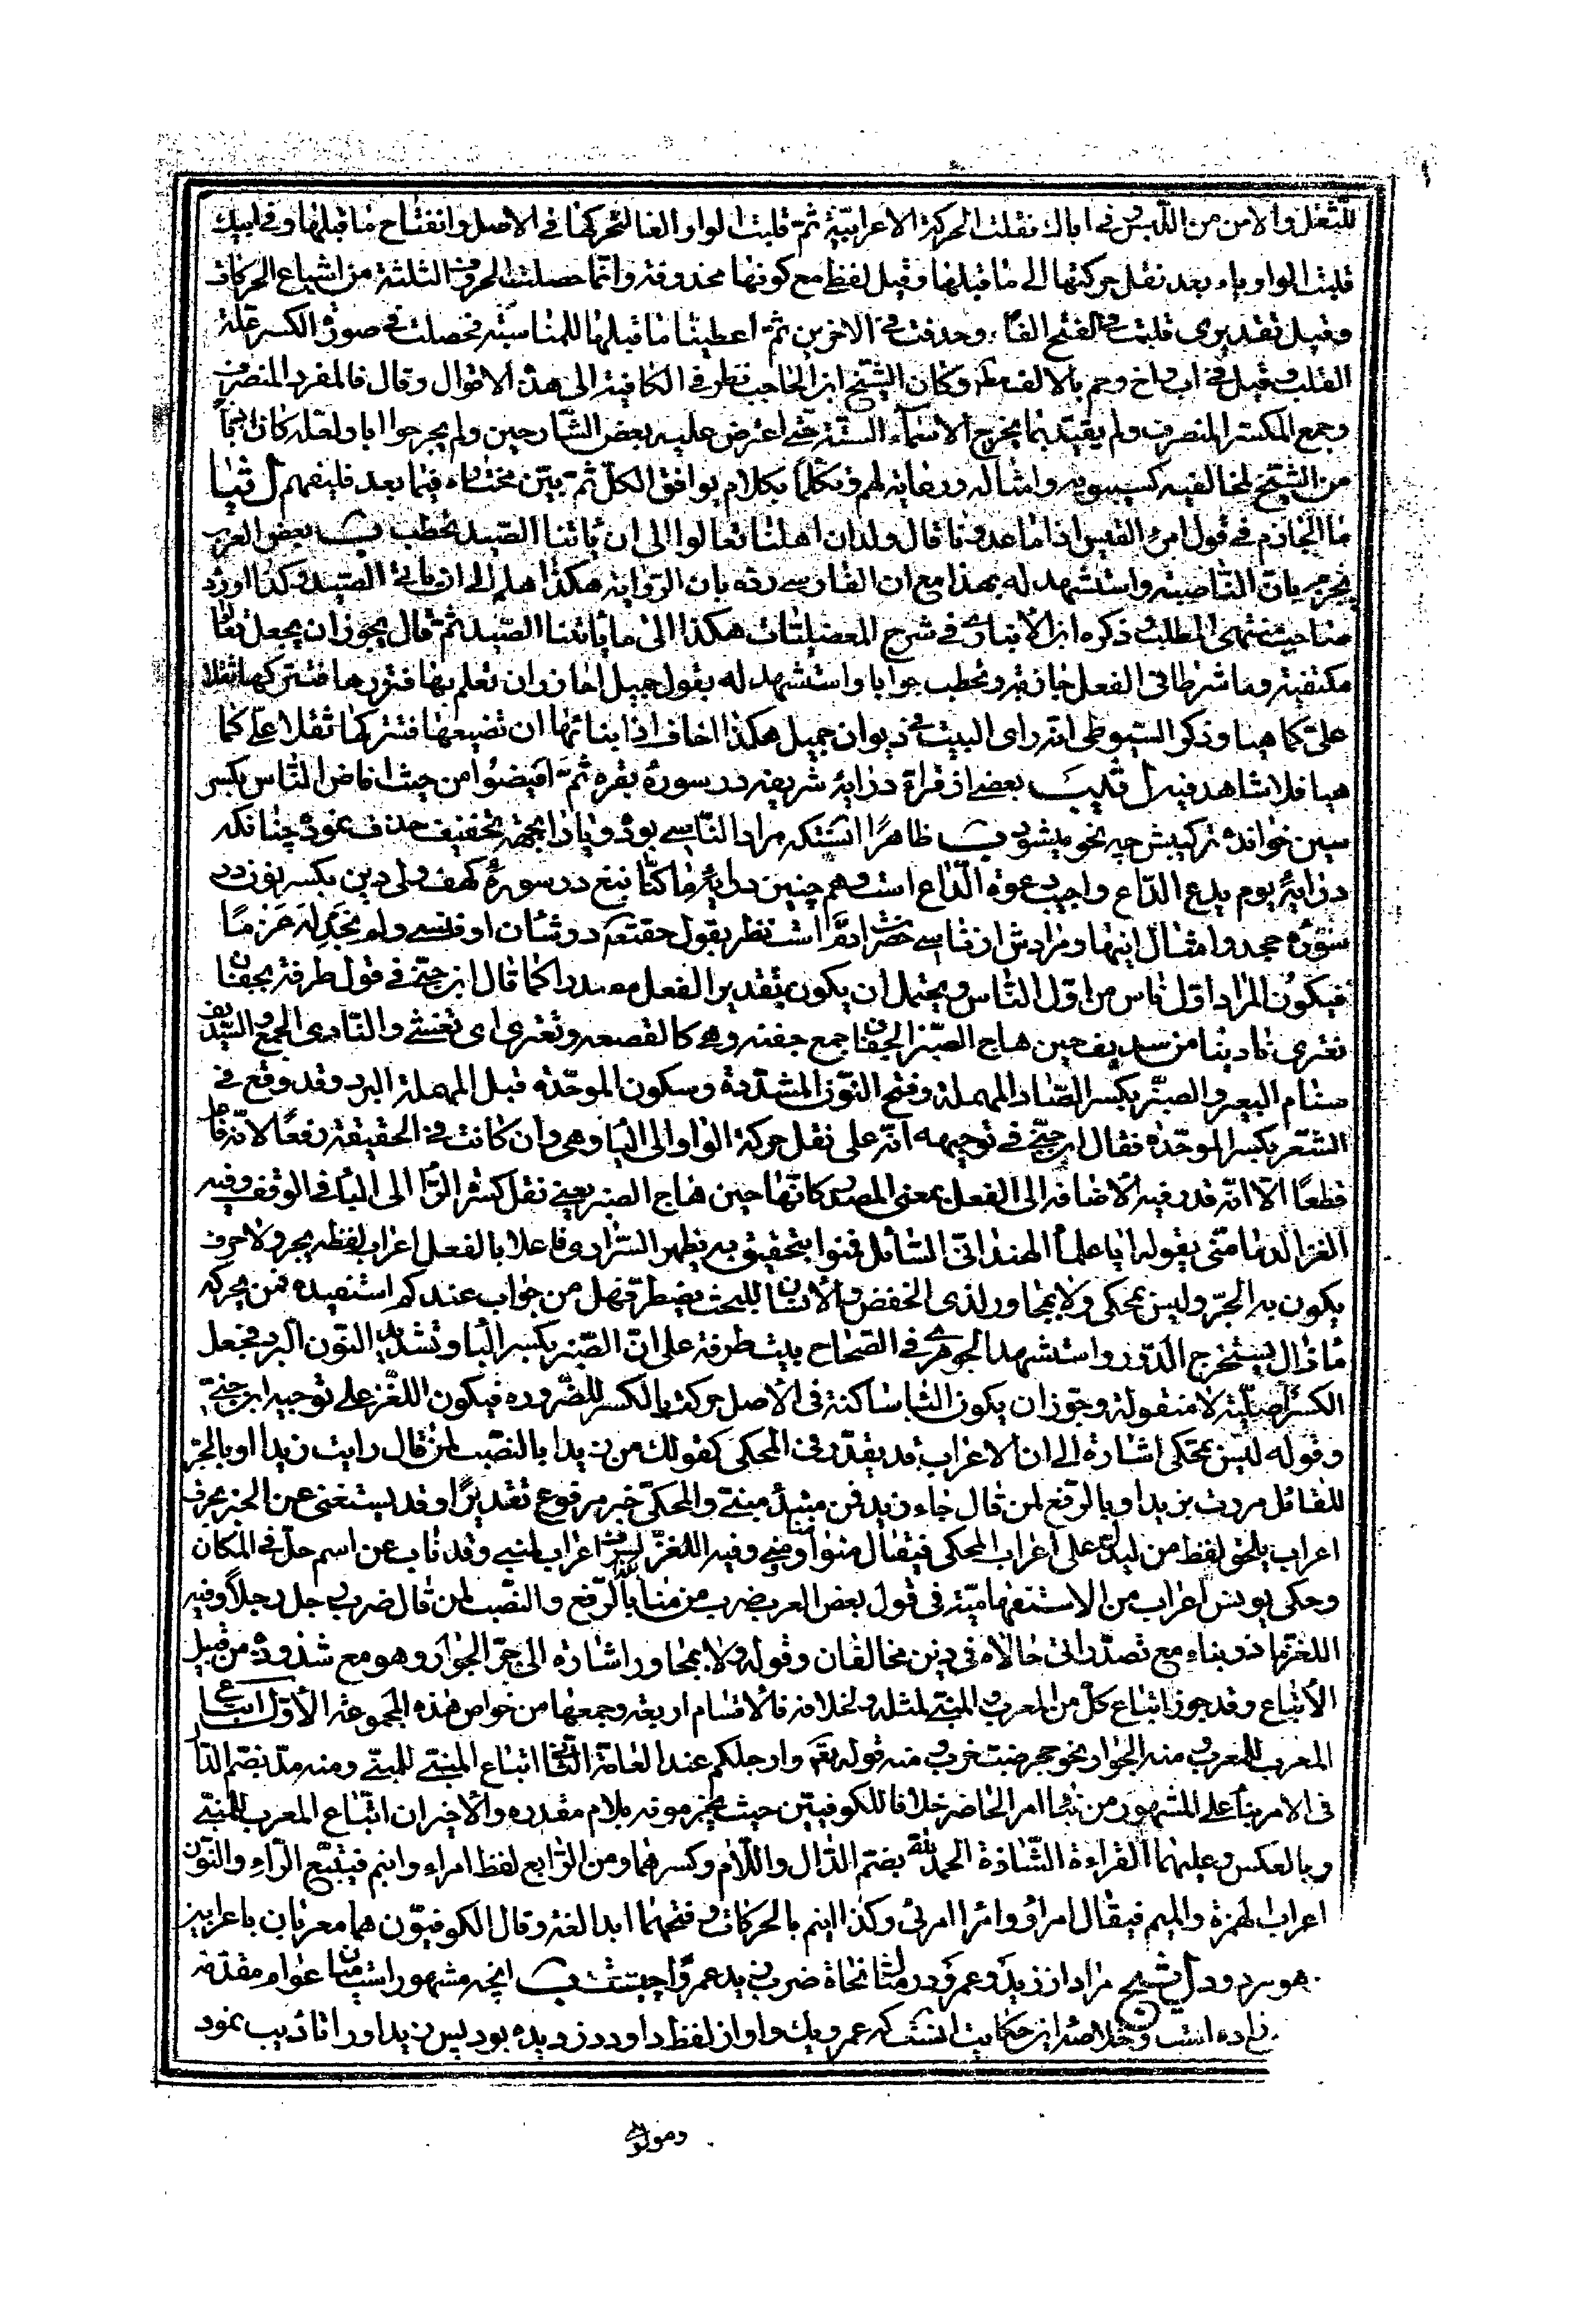 للثقل والامن من اللبس وفي اباك نقلت الحركة الاعرابية ثم قلبت الواو الفا لتحركها في الاصل وانفتاح ما قبلها وفي ابيك
قلبت الواو ياء بعد نقل حركتها الى ما قبلها وقيل لفظي مع كونها محذوفة وانما حصلت الحروف الثلثة من اشباع الحركات
وقيل تقديري قلبت في الفتح الفا وحذفت في الاخرين ثم اعطينا ما قبلها للمناسبة فحصلت في صورة الكسر علة
القلب وقيل في اب واخ وحم بالالف وكان الشيخ ابن الحاجب نظر في الكافية الى هذه الاقوال وقال فالمفرد المنصرف
وجمع المكسر المنصرف ولم يقيد بما يخرج الاسماء الستة حتى اعترض عليه بعض الشارحين ولم يجر جوابا ولعله كان
من الشيخ لمخالفيه كسيبويه وامثاله ورعاية لهم وتكلما بكلام يوافق الكل ثم بين مختاره فيما بعد فليفهم ل ثيا
ما الجازم في قول امرء القيس اذا ما عدونا قال ولدان اهلنا تعالوا الى ان ياتنا الصيد نحطب ب بعض العرب
يجزم بان الناصبة واستشهد له بهذا مع ان الفارسي رده بان الرواية هكذا هلم الى ان ياتي الصيد وكذا اورد
صاحب منتهى المطلب وذكره ابن الانباري في شرح المعضليات هكذا الى ما ياتنا الصيد ثم قال يجوز ان يجعل تعالوا
مكتفية وما شرطا في الفعل جازمة ونحطب جوابا واستشهد له بقول جميل احاذر ان تعلم بها فتردها فتتركها ثقلا
علي كما هيا وذكر السيوطي انه راى البيت في ديوان جميل هكذا اخاف اذا بناتها ان تضيعها فتتركها ثقلا علي كما
هيا فلا شاهد فيه ل قليب بعضى از قراة در آية شريفه در سورة بقره ثم افيضوا من حيث افاض الناس بكسر
سين خوانده تركيبش چه نحو ميشود ب ظاهرا اينستكه مراد الناسي بود و يا را بجهة تخفيف حذف نمود چنانكه
در آية يوم يدع الداع واجيب دعوة الداع است و هم چنين در آية ما كنا نبغ در سورة كهف ولى دين بكسر نون در
سوره جحد و امثال اينها و مرادش از ناسي حضرت ادم است نظر بقول حقتعم در شان او فنسي ولم نجد له عزما
فيكون المراد اول ناس من اول الناس ويحتمل ان يكون بتقدير الفعل مصدرا كما قال ابن جني في قول طرفة بجفان
تعتري نادينا من سديف حين هاج الصنبر الجفان جمع جفنه وهي كالقصعه وتعتري اى تغشى والنادى الجمع والسديف
سنام البعير والصنبر بكسر الصاد المهملة وفتح النون المشددة وسكون الموحدة قبل المهملة البرد وقد وقع في
الشعر بكسر الموحدة فقال ابن جني في توجيهه انه على نقل حركة الواو الى الباء وهي وان كانت في الحقيقة رفعا لانه فاعل
قطعا الا انه قدر فيه الاضافه الى الفعل بمعنى المصدر كانها حين هاج الصنبر يعني نقل كسرة الراء الى الباء في الوقف وفيه
الغز الدماميني بقوله ايا علماء الهند اني السائل فمنوا بتحقيق به يظهر السر ارى فاعلا بالفعل اعراب لفظه بجر ولا حرف
يكون به الجر وليس بمحكي ولا بمجاور لذى الخفض والانسان للبحث يضطر فهل من جواب عندكم استفيده فمن بحركم
ما زال يستخرج الدر واستشهد الجوهري في الصحاح ببيت طرفة على ان الصنبر بكسر الباء وتشديد النون البرد فجعل
الكسر اصلية لا منقولة وجوز ان يكون الباء ساكنة في الاصل حركت بالكسر للضروره فيكون اللغز على توجيه ابن جني
وقوله ليس بمحكي اشارة الى ان الاعراب قد يقدر في المحكي كقولك من زيدا بالنصب لمن قال رايت زيدا او بالجر
للقائل مررت بزيد او بالرفع لمن قال جاء زيد فمن مبتدء مبني والمحكي خبر مرفوع تقديرا وقد يستغنى عن الخبر بحرف
اعراب يلحق لفظ من ليدل على اعراب المحكي فيقال منوا ومني وفيه اللغز اعراب لمبني وقد ناب عن اسم حل في المكان
وحكى يونس اعراب من الاستفهامية في قول بعض العرب ضرب من منا بالرفع والنصب لمن قال ضرب رجل رجلا وفيه
اللغز ما ذو بناء مع تصدر اتى حالاه في دين مخالفان وقوله ولا بمجاور اشارة الى جر الجوار وهو مع شذوذه من قبيل
الاتباع وقد جوز اتباع كل من المعرب والمبني لمثله ولخلافه فالاقسام اربعة وجمعها من خواص هذه المجموعة الاول اتباع
المعرب للمعرب ومنه الجوار نحو جحر ضب خرب ومنه قوله تعم وارجلكم عند العامة الثاني اتباع المبني للمبني ومنه مد بضم الدال
في الامر بناء على المشهور من بناء امر الحاضر خلافا للكوفيين حيث يجزمونه بلام مقدره والاخيران اتباع المعرب للمبني
وبالعكس وعليهما القراءة الشاذة الحمد لله بضم الدال واللام وكسرهما ومن الرابع لفظ امراء وابنم فيتبع الراء والنون
اعراب الهمزة والميم فيقال امرؤ وامرا امرئ وكذا ابنم بالحركات وفتحهما ابدا لغة وقال الكوفيون هما معربان باعرابين
هو مردود ل شيخ مراد از زيد و عمرو در مثال نحاة ضرب زيد عمرا چيست ب انچه مشهور است ميان عوام مقدمه
زاده است و خلاصه اين حكايت اينستكه عمرو يك واو از لفظ داود دزديده بود پس زيد او را تاديب نمود
ومولوي